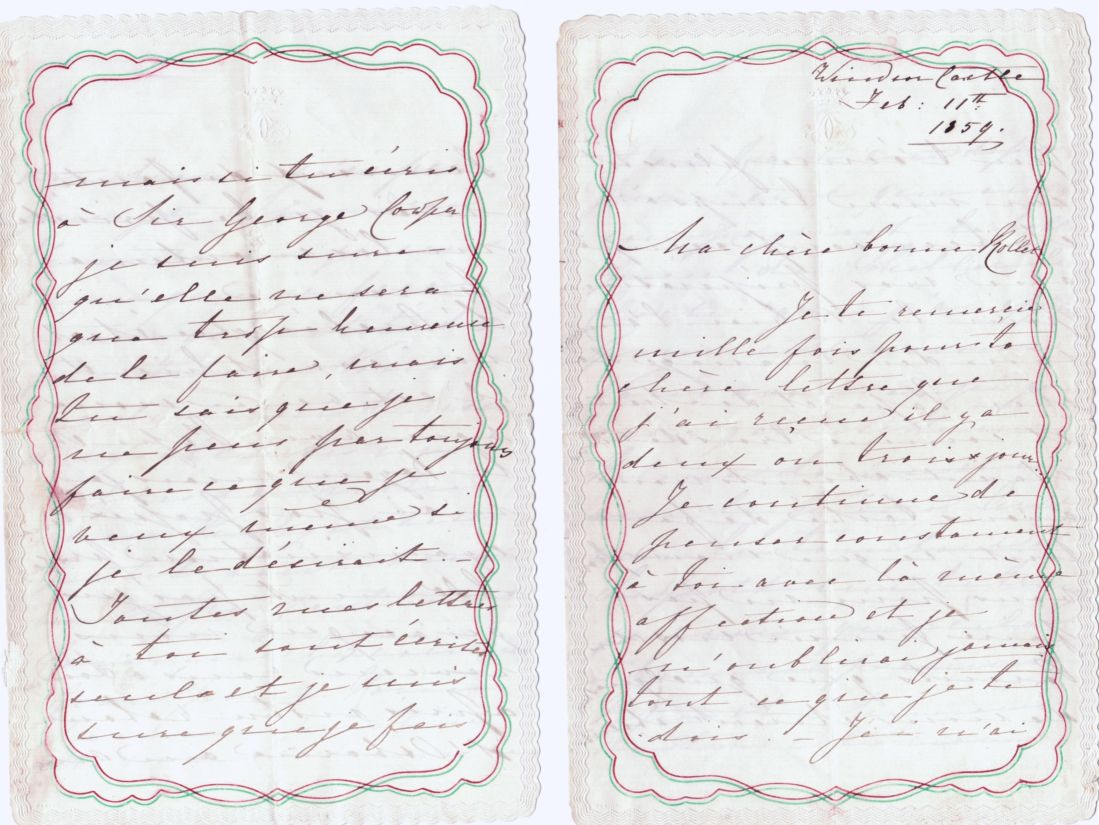 Windsor Castle
Feb: 11th
1859.
Ma chère bonne Rollet
Je te remercie
mille fois pour ta
chère lettre que
j'ai reçue il y a
deux ou trois jours.
Je continue de
penser constament
à toi avec la même
affection et je
n'oublirai jamais
tout ce que je te
dois. — n'ai
mais si tu écris
à Sir George Couper
je suis sure
qu'elle ne sera
que trop heureuse
de le faire, mais
tu sais que je
ne peux pas toujours
faire ce que je
veux même si
je le désirait. —
Toutes mes lettres
à toi sont écrites
seule et je suis
sure que je fais